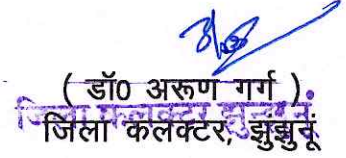 ( डॉ0 अरूण गर्ग )
जिला कलक्टर, झुंझुनूं
जिला कलक्टर, झुंझुनूं